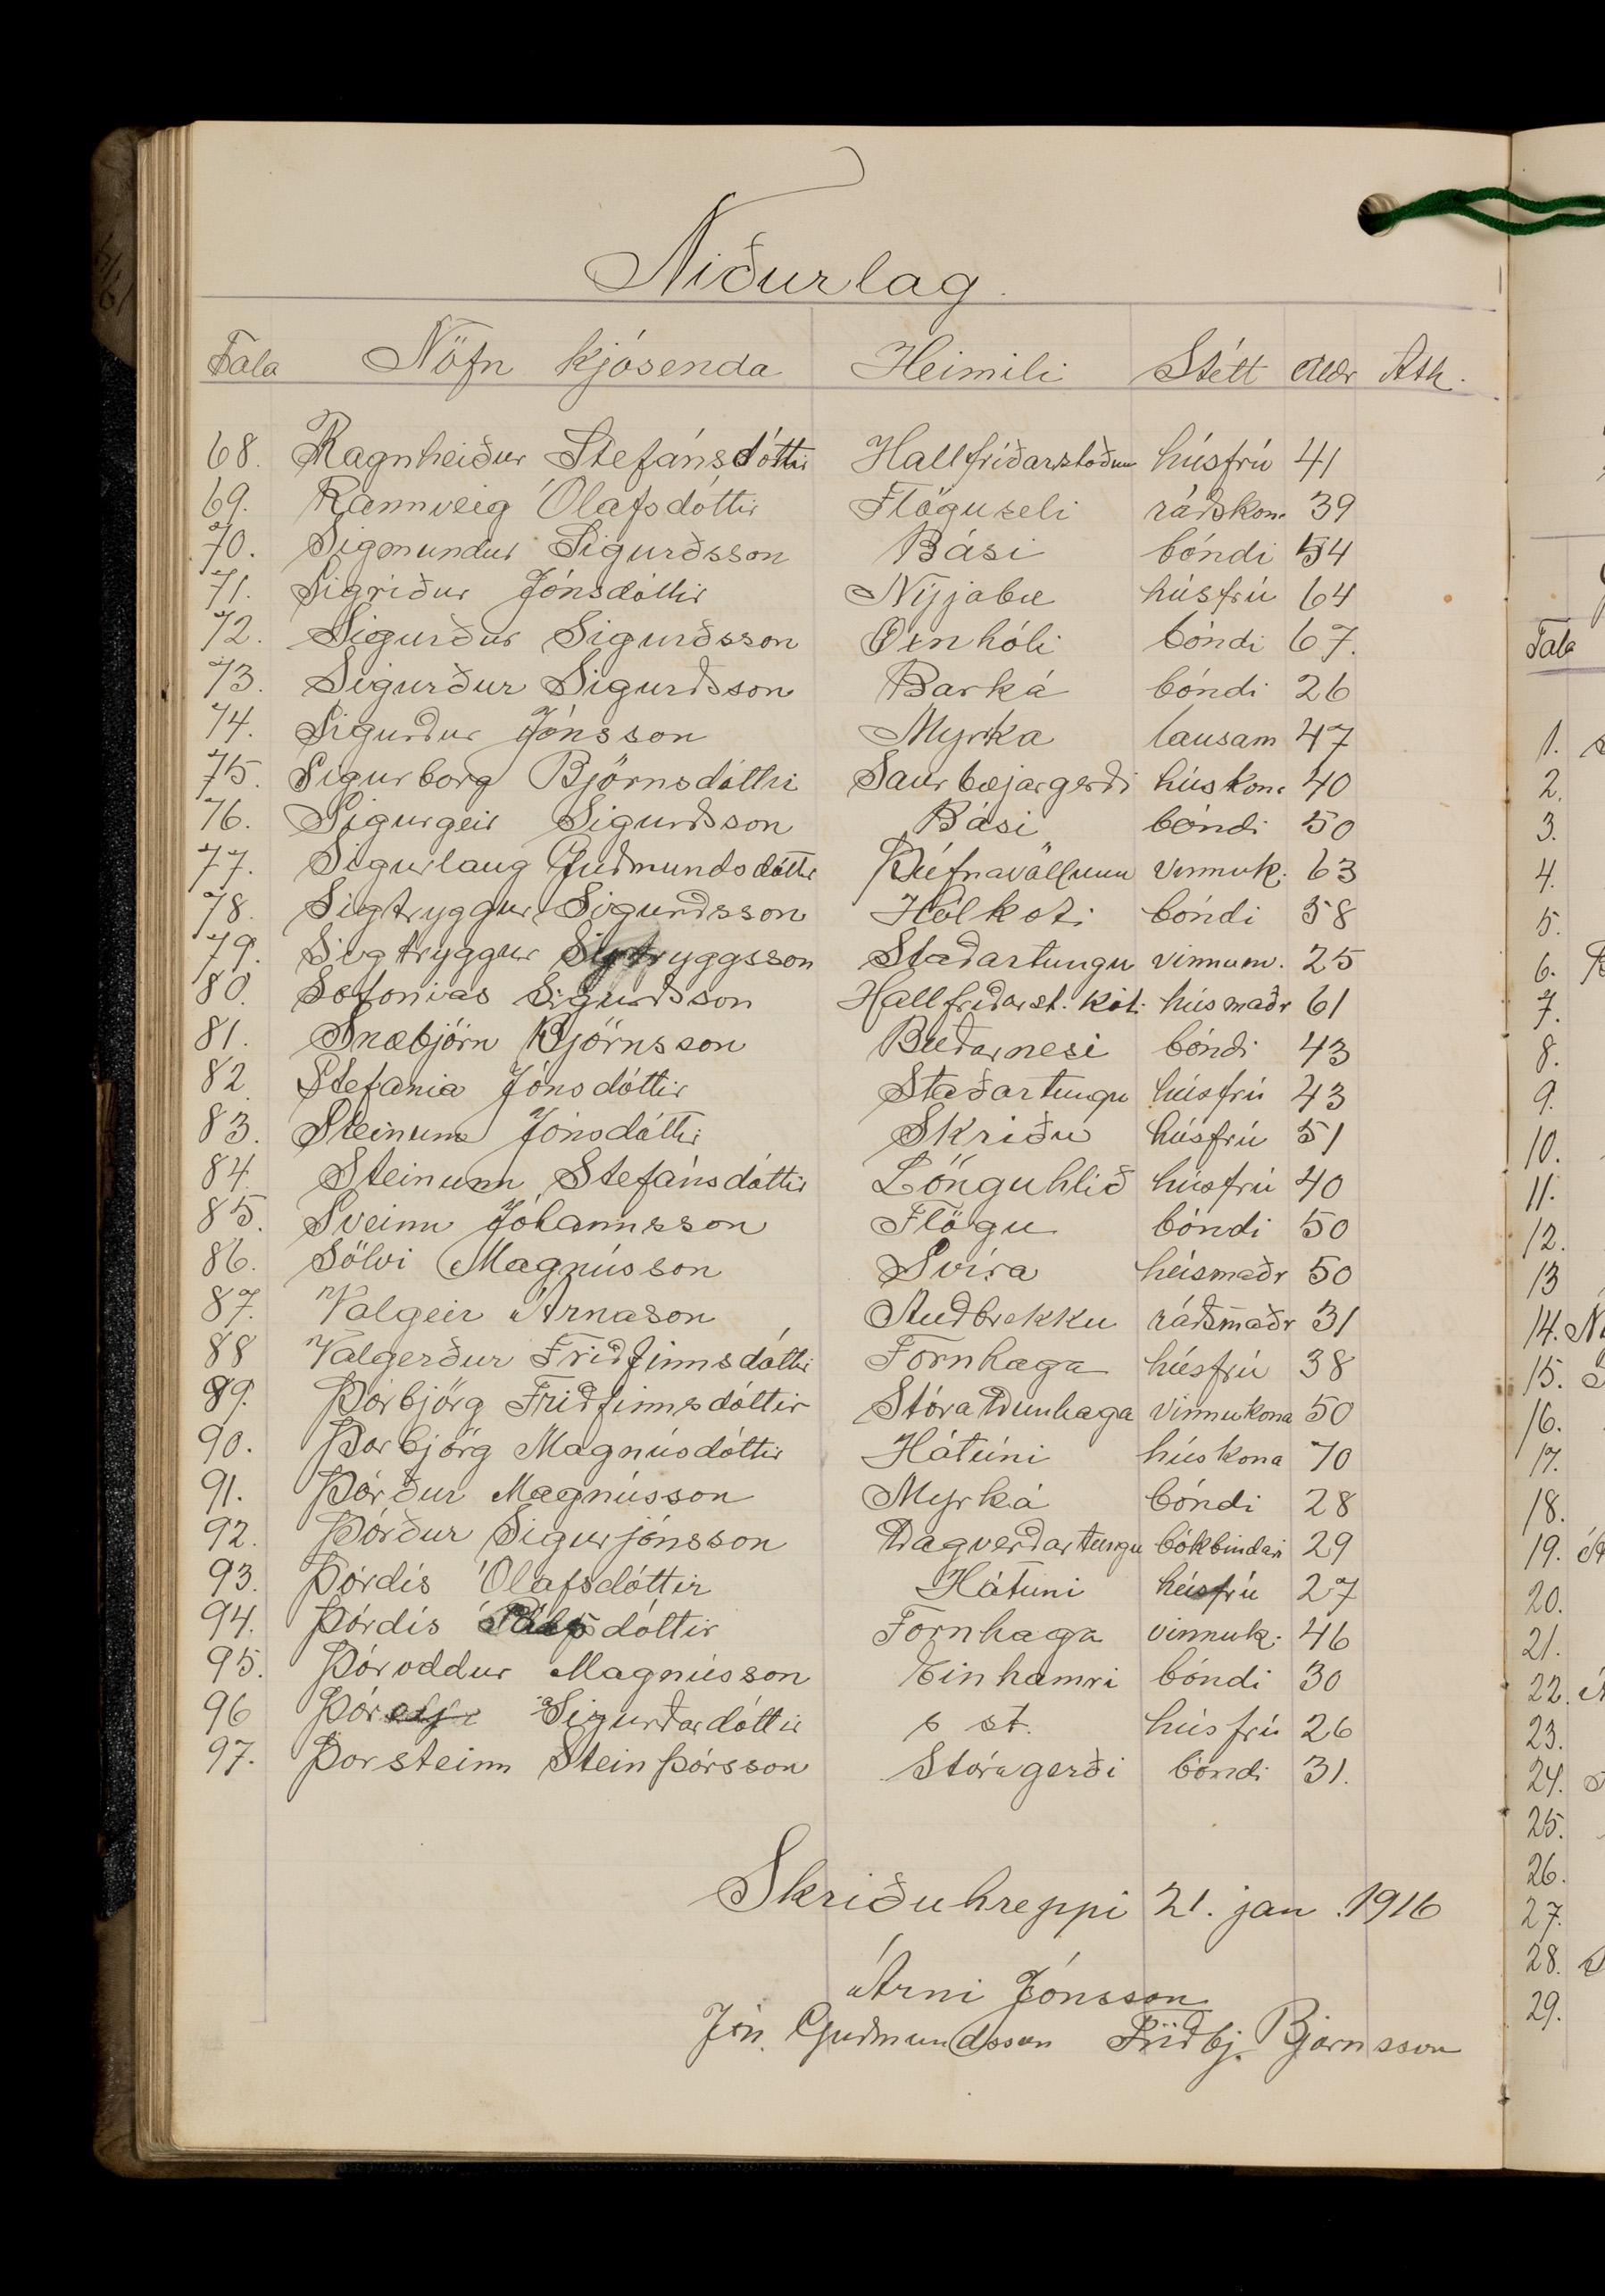 Niðurlag.
Tala Nöfn kjósenda Heimili Stétt Aldr Ath.
68. Ragnheiður Stefánsdóttir Hallfríðarstöðum húsfrú 41
69. Rannveig Ólafsdóttir Flöguseli ráðskona 39
70. Sigmundur Sigurðsson Bási bóndi 54
71. Sigríður Jónsdóttir Nýjabæ húsfrú 64
72. Sigurður Sigurðsson Öxnhóli bóndi 67.
73. Sigurður Sigurðsson Barká bóndi 26
74. Sigurður Jónsson Myrka lausam 47
75. Sigurborg Björnsdóttir Saurbæjargerði húskona 40
76. Sigurgeir Sigurðsson Bási bóndi 50
77. Sigurlaug Guðmundsdóttir Þúfnavöllum vinnuk. 63
78. Sigtryggur Sigurðsson Hólkoti bóndi 58
79. Sigtryggur Sigtryggsson Staðartungu vinnum. 25
80. Sofonias Sigurðsson Hallfríðarst. kot. húsmaðr 61
81. Snæbjörn Björnsson Búðarnesi bóndi 43
82. Stefania Jónsdóttir Staðartungu húsfrú 43
83. Steinunn Jónsdóttir Skriðu húsfrú 51
84. Steinunn Stefánsdóttir Lönguhlið húsfrú 40
85. Sveinn Jóhannsson Flögu bóndi 50
86. Sölvi Magnússon Svíra húsmaðr 50
87. Valgeir Árnason Auðbrekku ráðsmaðr 31
88 Valgerður Friðfinnsdóttir Fornhaga húsfrú 38
89. Þorbjörg Friðfinnsdóttir Stóra Dunhaga vinnukona 50
90. Þorbjörg Magnúsdóttir Hátúni húskona 70
91. Þórður Magnússon Myrká bóndi 28
92. Þórður Sigurjónsson Dagverðartungu bókbindari 29
93. Þórdís Ólafsdóttir Hátúni húsfrú 27
94. Þórdís Pálsdóttir Fornhaga vinnuk. 46
95. Þóroddur Magnússon Einhamri bóndi 30
96 Sigurðardóttir s st. húsfrú 26
97. Þorsteinn Steinþórsson Stóragerði bóndi 31.
Skriðuhreppi 21. jan. 1916
Árni Jónsson
Jón. Guðmundsson Friðbj. Björnsson
Tala
1.
2.
3.
4.
5.
6.
7.
8.
9.
10.
11.
12.
13
14.
15.
16.
17.
18.
19.
20.
21.
22.
23.
24.
25.
26.
27.
28.
29.